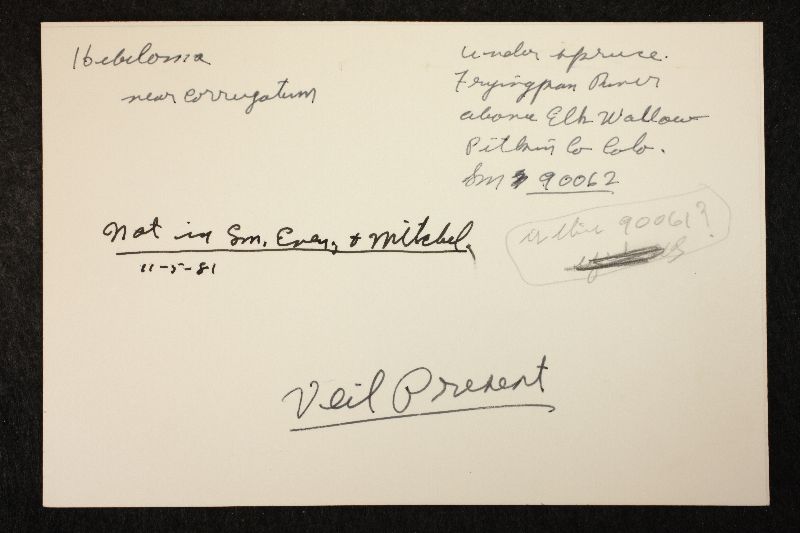 Hebeloma
near corrugatum
under spruce.
Fryingpan River
above Elk Wallow
Pitkin Co Colo.
Sm 90062
Not in Sm, Even, & Mitchel.
11-5-81
is this 90061?
Veil Present